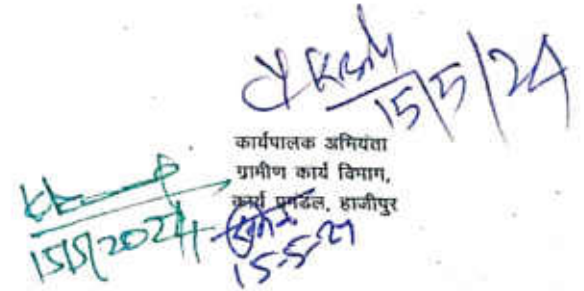 15/5/24
कार्यपालक अभियंता
ग्रामीण कार्य विभाग,
कार्य प्रमंडल, हाजीपुर
15/5/2024
15-5-24